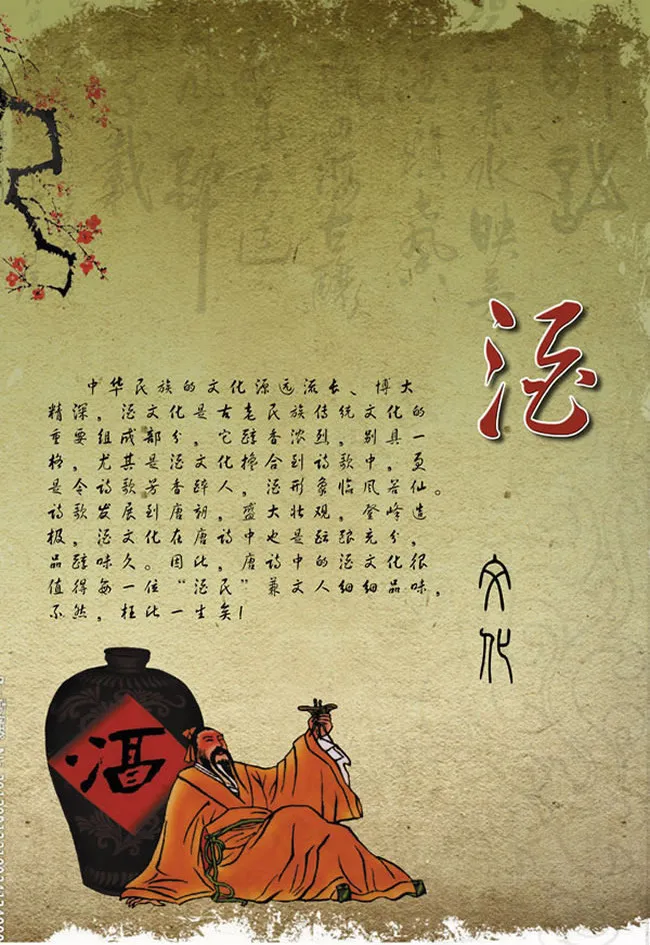 酒
文化
中华民族的文化源远流长、博大
精深，酒文化是古老民族传统文化的
重要组成部分，它醇香浓烈，别具一
格，尤其是酒文化搀合到诗歌中，更
是令诗歌芳香醉人，酒形象临风若仙。
诗歌发展到唐朝，盛大壮观，登峰造
极，酒文化在唐诗中也是酝酿充分，
品醇味久。因此，唐诗中的酒文化很
值得每一位“酒民”兼文人细细品味，
不然，枉此一生矣！
酒